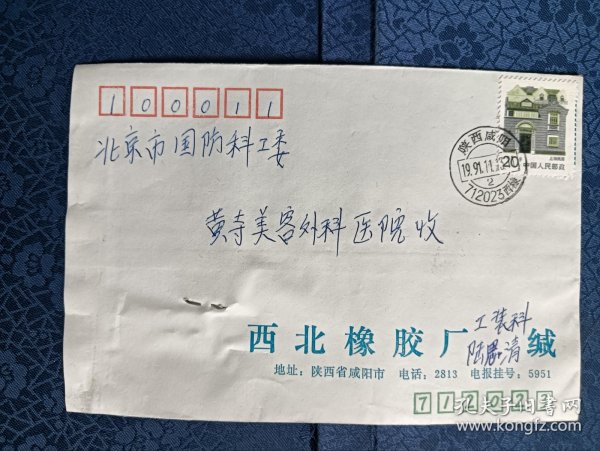 100011
北京市国防科工委
黄寺美容外科医院收
陕西咸阳
1991.11.
2
712023
20
中国人民邮政
上海民居
西北橡胶厂 工装科 缄
陆 清
地址：陕西省咸阳市 电话：2813 电报挂号：5951
712023
孔夫子旧书网
www.kongfz.com